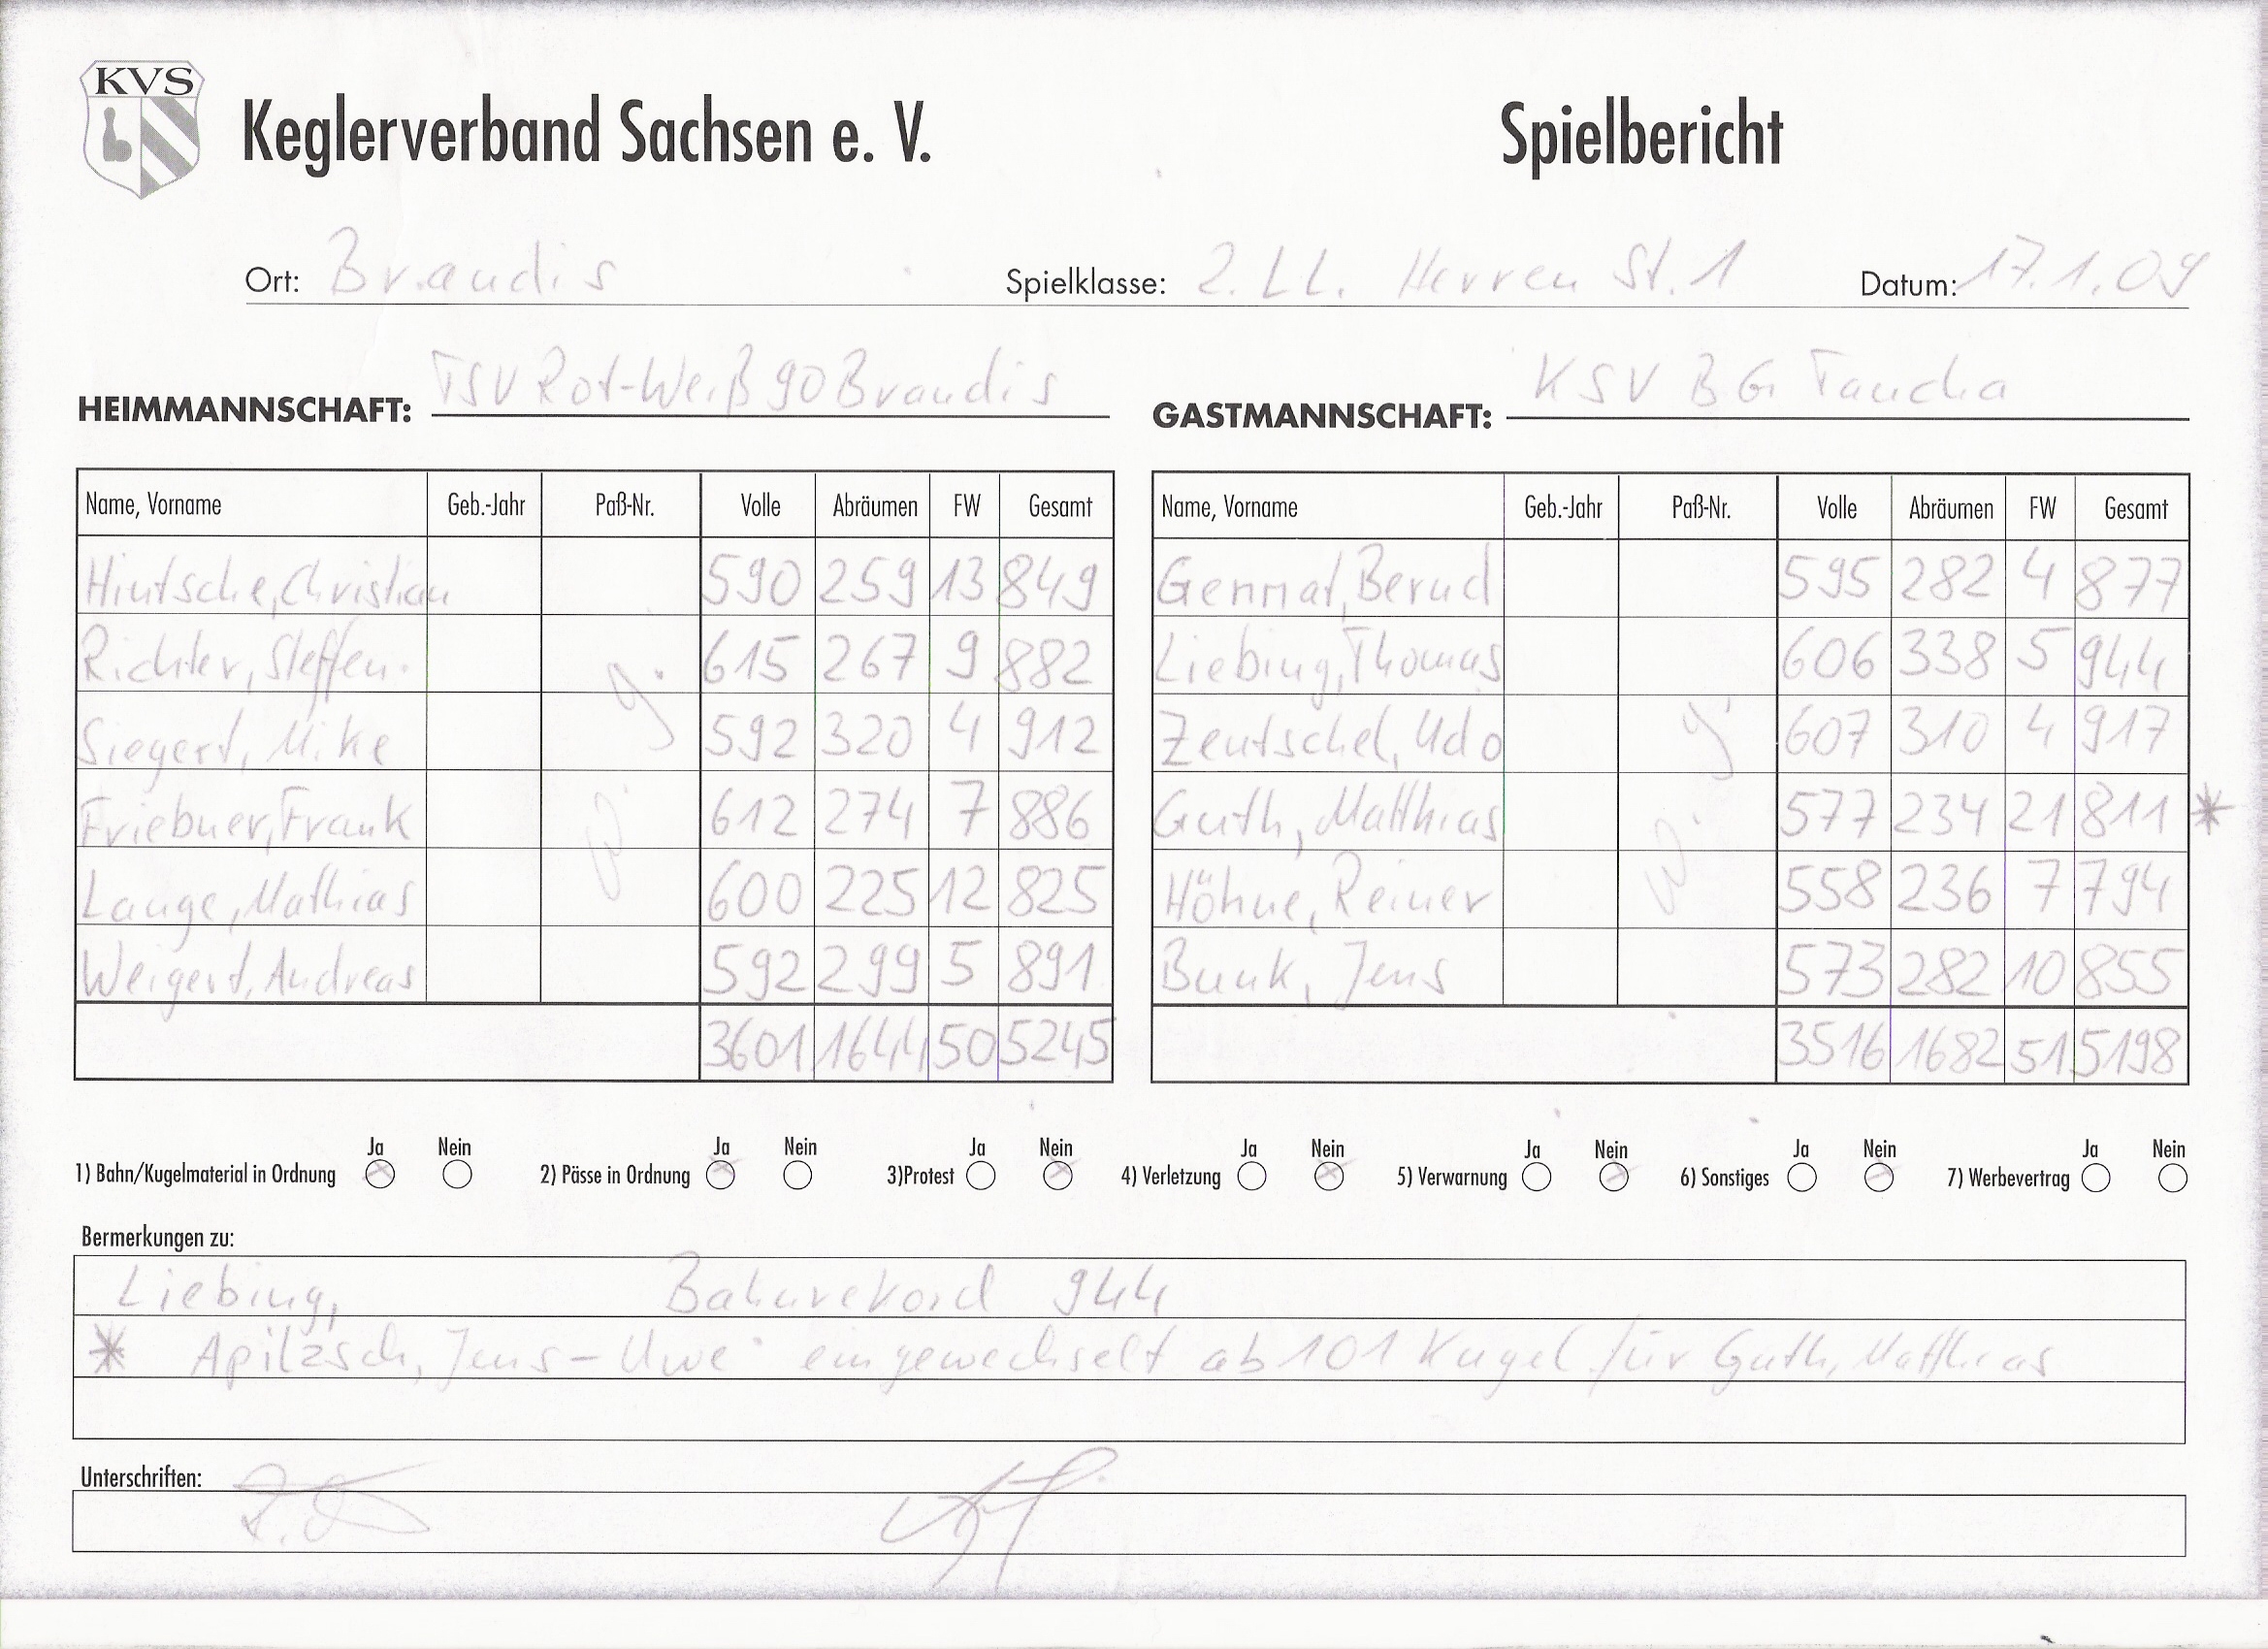 KVS
Keglerverband Sachsen e. V. Spielbericht
Ort: Brandis Spielklasse: 2. LL. Herren St. 1 Datum: 17.1.09
HEIMMANNSCHAFT: TSV Rot-Weiß 90 Brandis GASTMANNSCHAFT: KSV BG Taucha
Name, Vorname Geb.-Jahr Paß-Nr. Volle Abräumen FW Gesamt Name, Vorname Geb.-Jahr Paß-Nr. Volle Abräumen FW Gesamt
Hintsche, Christian 590 259 13 849 Gennat, Bernd 595 282 4 877
Richter, Steffen 615 267 9 882 Liebing, Thomas 606 338 5 944
Siegert, Mike g. 592 320 4 912 Zeutschel, Udo g. 607 310 4 917
Friebner, Frank 612 274 7 886 Guth, Matthias 577 234 21 811 *
Lange, Mathias w. 600 225 12 825 Höhne, Reiner w. 558 236 7 794
Weigert, Andreas 592 299 5 891 Bunk, Jens 573 282 10 855
3601 1644 50 5245 3516 1682 51 5198
Ja Nein Ja Nein Ja Nein Ja Nein Ja Nein Ja Nein Ja Nein
1) Bahn/Kugelmaterial in Ordnung 2) Pässe in Ordnung 3)Protest 4) Verletzung 5) Verwarnung 6) Sonstiges 7) Werbevertrag
Bermerkungen zu:
Liebing, Bahnrekord 944
* Apitzsch, Jens-Uwe eingewechselt ab 101 Kugel für Guth, Matthias
Unterschriften: